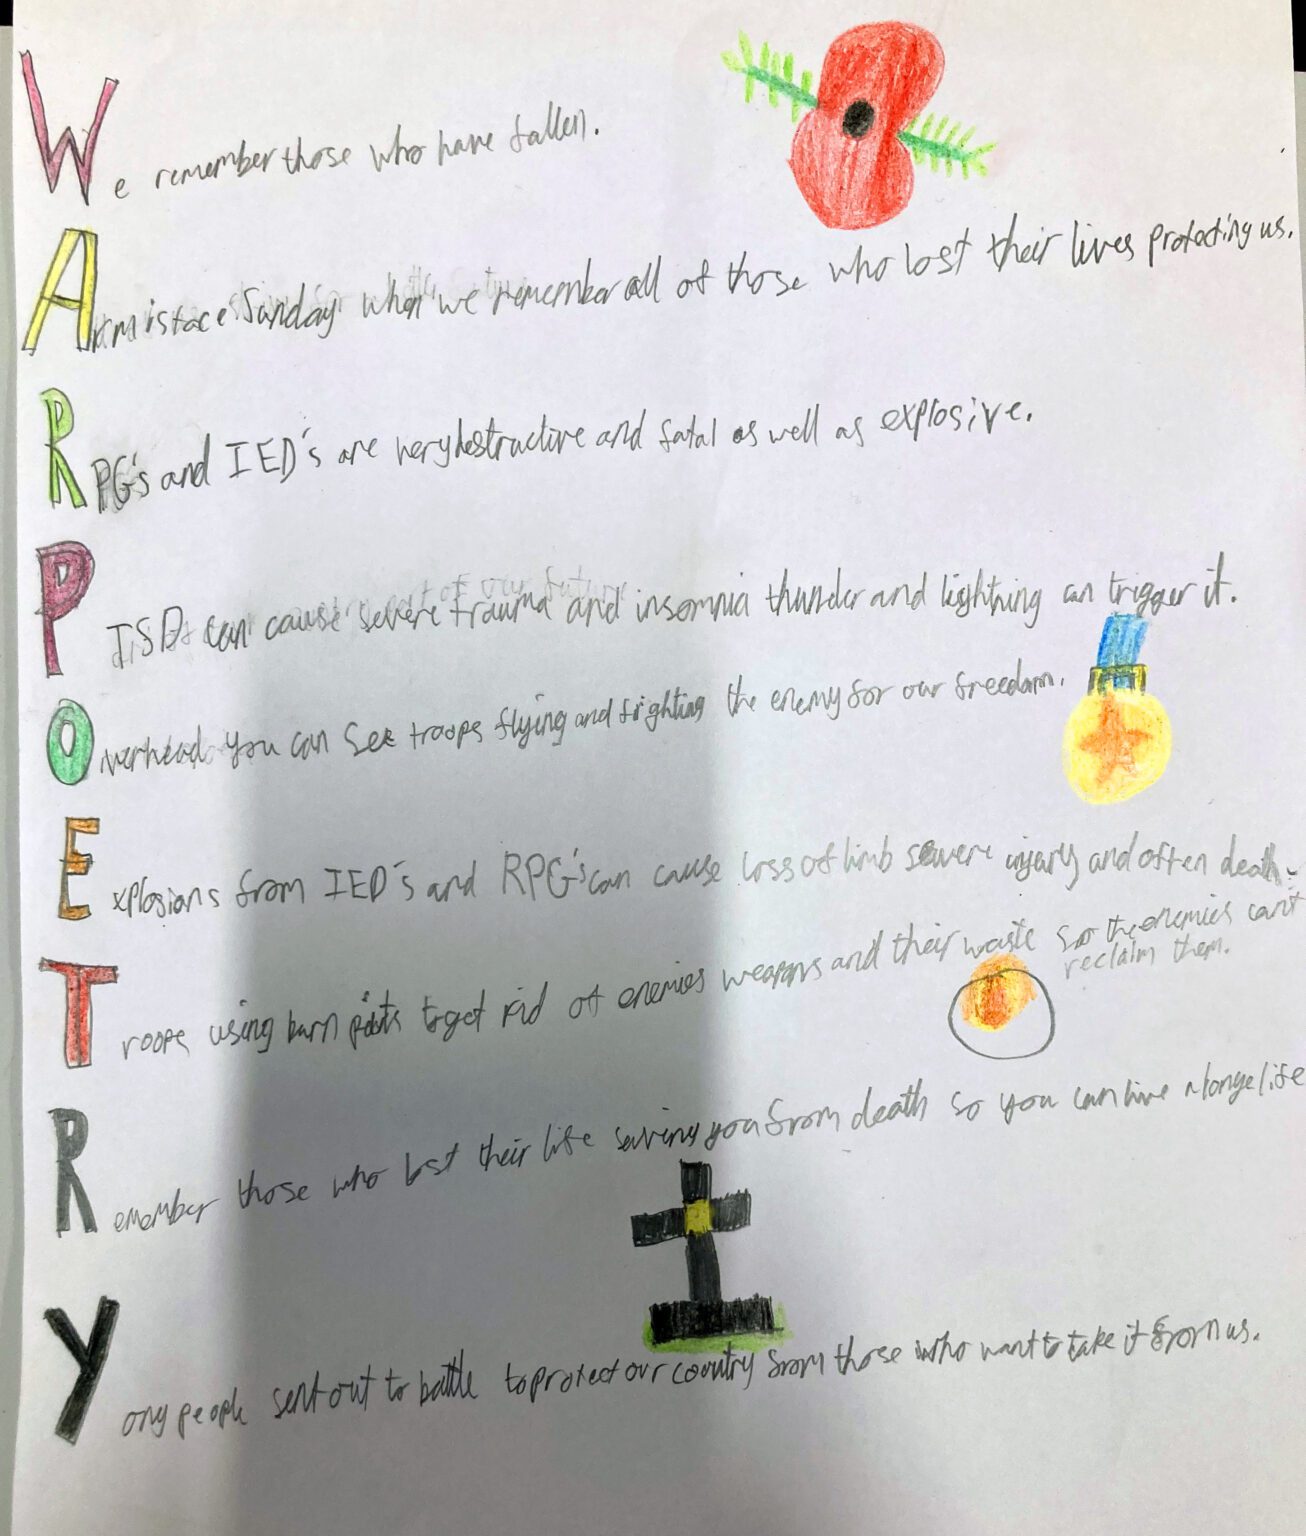 We remember those who have fallen.
Armistace Sunday when we remember all of those who lost their lives protecting us.
RPG's and IED's are very destructive and fatal as well as explosive.
PTSD can cause severe trauma and insomnia thunder and lightning can trigger it.
Overhead you can see troops flying and fighting the enemy for our freedom.
Explosions from IED's and RPG's can cause loss of limb severe injury and often death.
Troops using burn pits to get rid of enemies weapons and their waste so the enemies can't
reclaim them.
Remember those who lost their life saving you from death so you can live a longe life
Yong people sent out to battle to protect our country from those who want to take it from us.